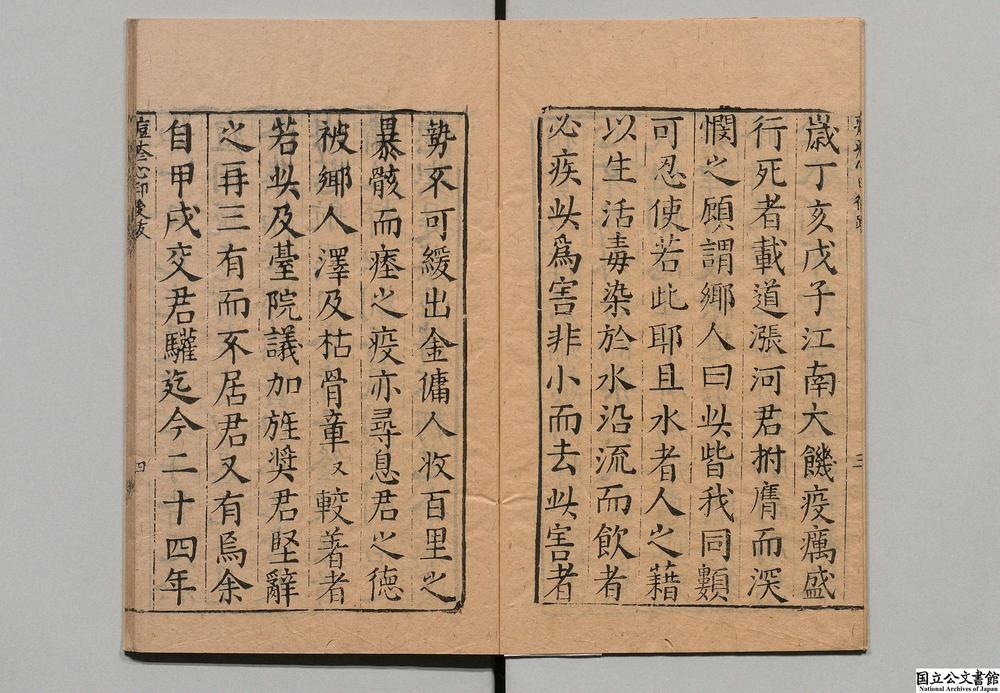 歲丁亥戊子江南大饑疫癘盛
行死者載道漲河君拊膺而深
憫之顧謂鄉人曰此皆我同類
可忍使若此耶且水者人之藉
以生活毒染於水沿流而飲者
必疾此爲害非小而去此害者
三
勢不可緩出金傭人收百里之
暴骸而瘞之疫亦尋息君之德
被鄉人澤及枯骨章又較著者
若此及臺院議加旌奨君堅辭
之再三有而不居君又有焉余
自甲戌交君驩迄今二十四年
痘疹心印後跋
四
国立公文書館
National Archives of Japan